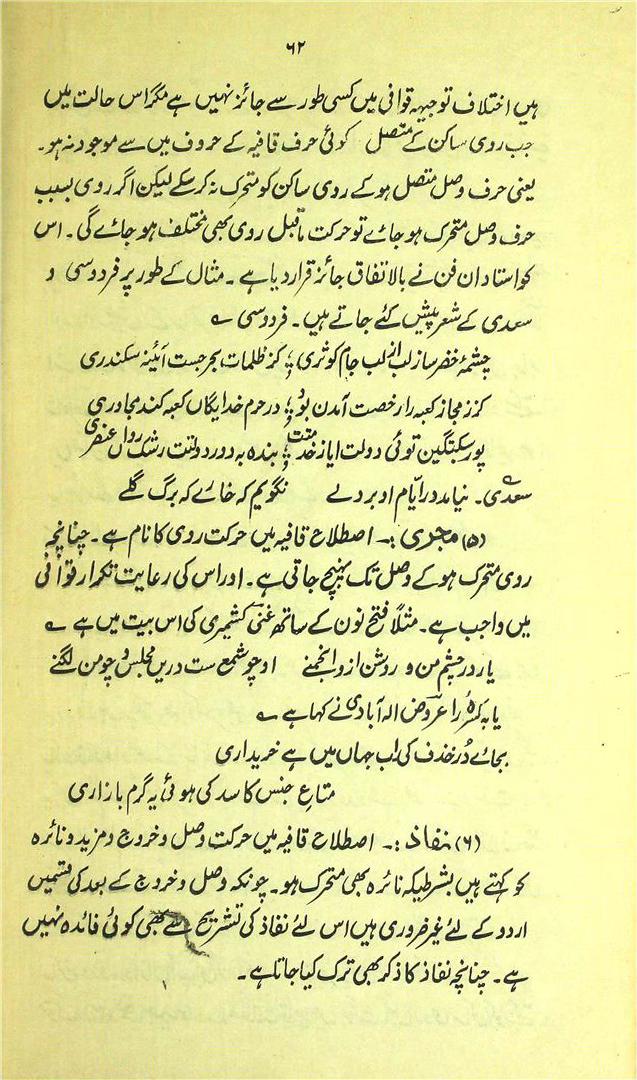 ۶۲
ہیں اختلاف توجیہہ قوافی میں کسی طور سے جائز نہیں ہے مگر اس حالت میں
جب روی ساکن کے متصل کوئی حرف قافیہ کے حروف میں سے موجود نہ ہو۔
یعنی حرف وصل متصل ہوکے روی ساکن کو متحرک نہ کرسکے لیکن اگر روی بسبب
حرف وصل متحرک ہوجائے تو حرکت ماقبل روی بھی مختلف ہوجائے گی۔ اس
کو استادان فن نے بالاتفاق جائز قرار دیا ہے۔ مثال کے طور پر فردوسی و
سعدی کے شعر پیش کئے جاتے ہیں۔ فردوسی ؎
چشمۂ خضر ساز لب از لب جام کوثری ؛ کز ظلمات بحر جست آئینہ سکندری
کزز مجاز کعبہ را رخصت آمدن بود ؛ در حرم خدایگاں کعبہ کند مجاوری
پور سبکتگین توئی دولت ایاز خدمتت ؛ بندہ بہ دور دولتت رشک رواں عنصری
سعدی۔ نیامد در ایام او بر دلے نگویم کہ خارے کہ برگ گلے
(۵) مجری :۔ اصطلاح قافیہ میں حرکت روی کا نام ہے۔ چنانچہ
روی متحرک ہوکے وصل تک پہنچ جاتی ہے۔ اور اس کی رعایت تکرار قوافی
میں واجب ہے۔ مثلاً فتح نون کے ساتھ غنی کشمیری کی اس بیت میں ہے ؎
یار در چشم من و روشن از و انجمنے او چو شمع ست دریں مجلس و چومن لگنے
یا بہ کسرۂ را عروض الہ آبادی نے کہا ہے ؎
بجائے دُر خذف کی اب جہاں میں ہے خریداری
متاع جنس کاسد کی ہوئی یہ گرم بازاری
(۶) نفاذ :۔ اصطلاح قافیہ میں حرکت وصل و خروج و مزید و نائرہ
کو کہتے ہیں بشرطیکہ نائرہ بھی متحرک ہو۔ چونکہ وصل و خروج کے بعد کی قسمیں
اردو کے لئے غیر ضروری ہیں اس لئے نفاذ کی تشریح سے بھی کوئی فائدہ نہیں
ہے۔ چنانچہ نفاذ کا ذکر بھی ترک کیا جاتا ہے۔